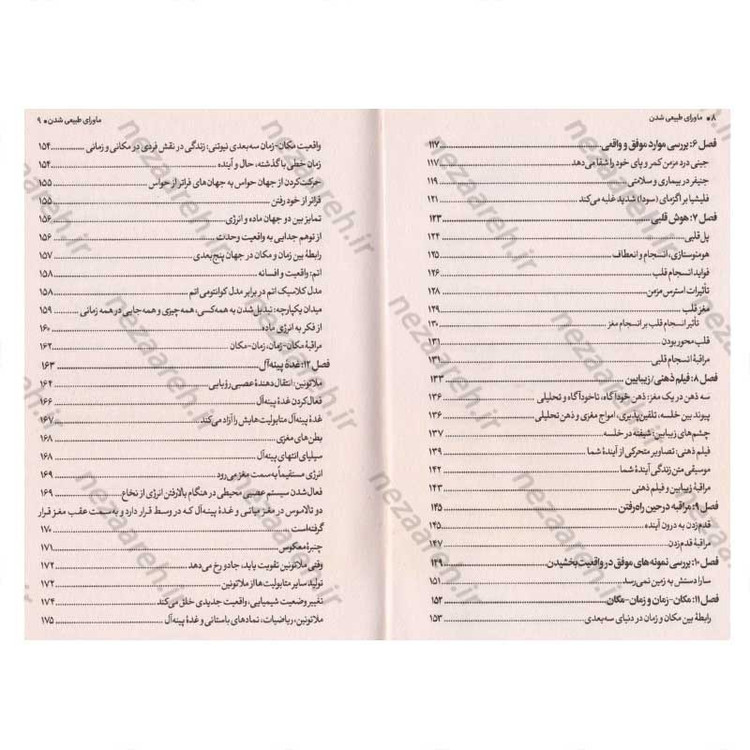 ۸ ● ماورای طبیعی شدن
فصل ۶: بررسی موارد موفق و واقعی ۱۱۷
جینی درد مزمن کمر و پای خود را شفا می‌دهد ۱۱۷
جنیفر در بیماری و سلامتی ۱۱۹
فلیشیا بر اگزمای (سودا) شدید غلبه می‌کند ۱۲۱
فصل ۷: هوش قلبی ۱۲۳
پل قلبی ۱۲۴
هومئوستازی، انسجام و انعطاف ۱۲۵
فواید انسجام قلب ۱۲۶
تأثیرات استرس مزمن ۱۲۸
مغز قلب ۱۲۹
تأثیر انسجام قلب بر انسجام مغز ۱۳۰
قلب محور بودن ۱۳۱
مراقبهٔ انسجام قلبی ۱۳۱
فصل ۸: فیلم ذهنی/ زیبابین ۱۳۳
سه ذهن در یک مغز: ذهن خودآگاه، ناخودآگاه و تحلیلی ۱۳۶
پیوند بین خلسه، تلقین‌پذیری، امواج مغزی و ذهن تحلیلی ۱۳۶
چشم‌های زیبابین: شیفته در خلسه ۱۳۷
فیلم ذهنی: تصاویر متحرکی از آیندهٔ شما ۱۳۹
موسیقی متن زندگی آیندهٔ شما ۱۴۲
مراقبهٔ زیبابین و فیلم ذهنی ۱۴۳
فصل ۹: مراقبه در حین راه رفتن ۱۴۵
قدم‌زدن به درون آینده ۱۴۵
مراقبهٔ قدم‌زدن ۱۴۷
فصل ۱۰: بررسی نمونه‌های موفق در واقعیت بخشیدن ۱۴۹
سارا دستش به زمین نمی‌رسد ۱۵۱
فصل ۱۱: مکان-زمان و زمان-مکان ۱۵۲
رابطهٔ بین مکان و زمان در دنیای سه‌بعدی ۱۵۳
ماورای طبیعی شدن ● ۹
واقعیت مکان-زمان سه‌بعدی نیوتنی: زندگی در نقش فردی در مکانی و زمانی ۱۵۴
زمان خطی با گذشته، حال و آینده ۱۵۴
حرکت‌کردن از جهان حواس به جهان‌های فراتر از حواس ۱۵۵
فراتر از خود رفتن ۱۵۵
تمایز بین دو جهان ماده و انرژی ۱۵۶
از توهم جدایی به واقعیت وحدت ۱۵۶
رابطهٔ بین زمان و مکان در جهان پنج‌بعدی ۱۵۷
اتم: واقعیت و افسانه ۱۵۸
مدل کلاسیک اتم در برابر مدل کوانتومی اتم ۱۵۸
میدان یکپارچه: تبدیل‌شدن به همه‌کسی، همه‌چیزی و همه‌جایی در همه زمانی ۱۵۹
از فکر به انرژی ماده ۱۶۰
مراقبهٔ مکان-زمان، زمان-مکان ۱۶۲
فصل ۱۲: غدهٔ پینه‌آل ۱۶۳
ملاتونین: انتقال‌دهندهٔ عصبی رؤیایی ۱۶۴
فعال‌کردن غدهٔ پینه‌آل ۱۶۶
غدهٔ پینه‌آل متابولیت‌هایش را آزاد می‌کند ۱۶۷
بطن‌های مغزی ۱۶۸
سیلیای انتهای پینه‌آل ۱۶۸
انرژی مستقیماً به سمت مغز می‌رود ۱۶۹
فعال‌شدن سیستم عصبی محیطی در هنگام بالا رفتن انرژی از نخاع ۱۶۹
دو تالاموس در مغز میانی و غدهٔ پینه‌آل که در وسط قرار دارد و به سمت عقب مغز قرار
گرفته‌است ۱۷۰
چنبرهٔ معکوس ۱۷۱
وقتی ملاتونین تقویت یابد، جادو رخ می‌دهد ۱۷۲
تولید سایر متابولیت‌ها از ملاتونین ۱۷۲
تغییر وضعیت شیمیایی، واقعیت جدیدی خلق می‌کند ۱۷۴
ملاتونین، ریاضیات، نمادهای باستانی و غدهٔ پینه‌آل ۱۷۵
nezaareh.ir